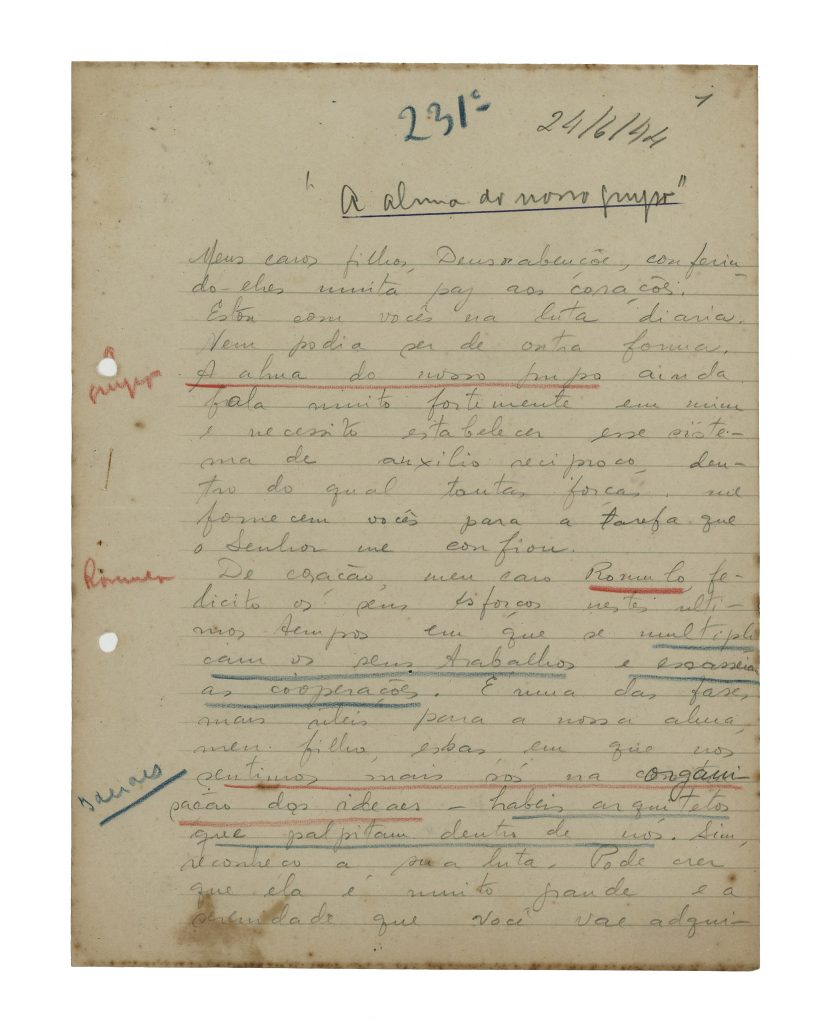 231ª
24/6/44
1
"A alma do nosso grupo"
Meus caros filhos, Deus os abençôe, conferin-
do-lhes muita paz aos corações.
Estou com vocês na luta diaria.
Nem podia ser de outra forma.
A alma do nosso grupo ainda
grupo
fala muito fortemente em mim
e necessito estabelecer esse siste-
ma de auxilio reciproco, den-
tro do qual tantas forças me
fornecem vocês para a tarefa que
o Senhor me confiou.
De coração, meu caro Romulo, fe-
Romulo
licito os seus esforços nestes ulti-
mos tempos em que se multipli
cam os seus trabalhos e escasseiam
as cooperações. É uma das fases
mais úteis para a nossa alma,
meu filho, essas em que nos
sentimos mais sós na organi-
Ideaes
sação dos ideaes – habeis arquitetos
que palpitam dentro de nós. Sim,
reconheço a sua luta. Pode crer
que ela é muito grande e a
serenidade que você vae adqui-